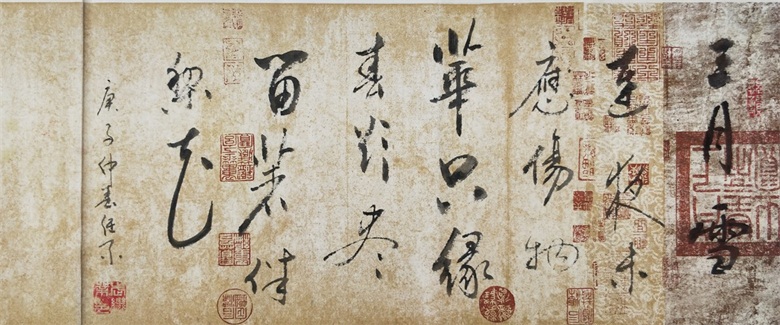 三月雪
連夜未
應傷物
華只緣
春欲尽
留著伴
梨花
庚子仲春任